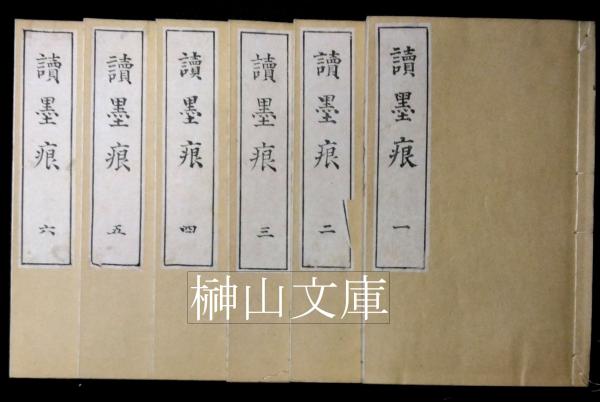 讀墨痕 一
讀墨痕 二
讀墨痕 三
讀墨痕 四
讀墨痕 五
讀墨痕 六
榊山文庫